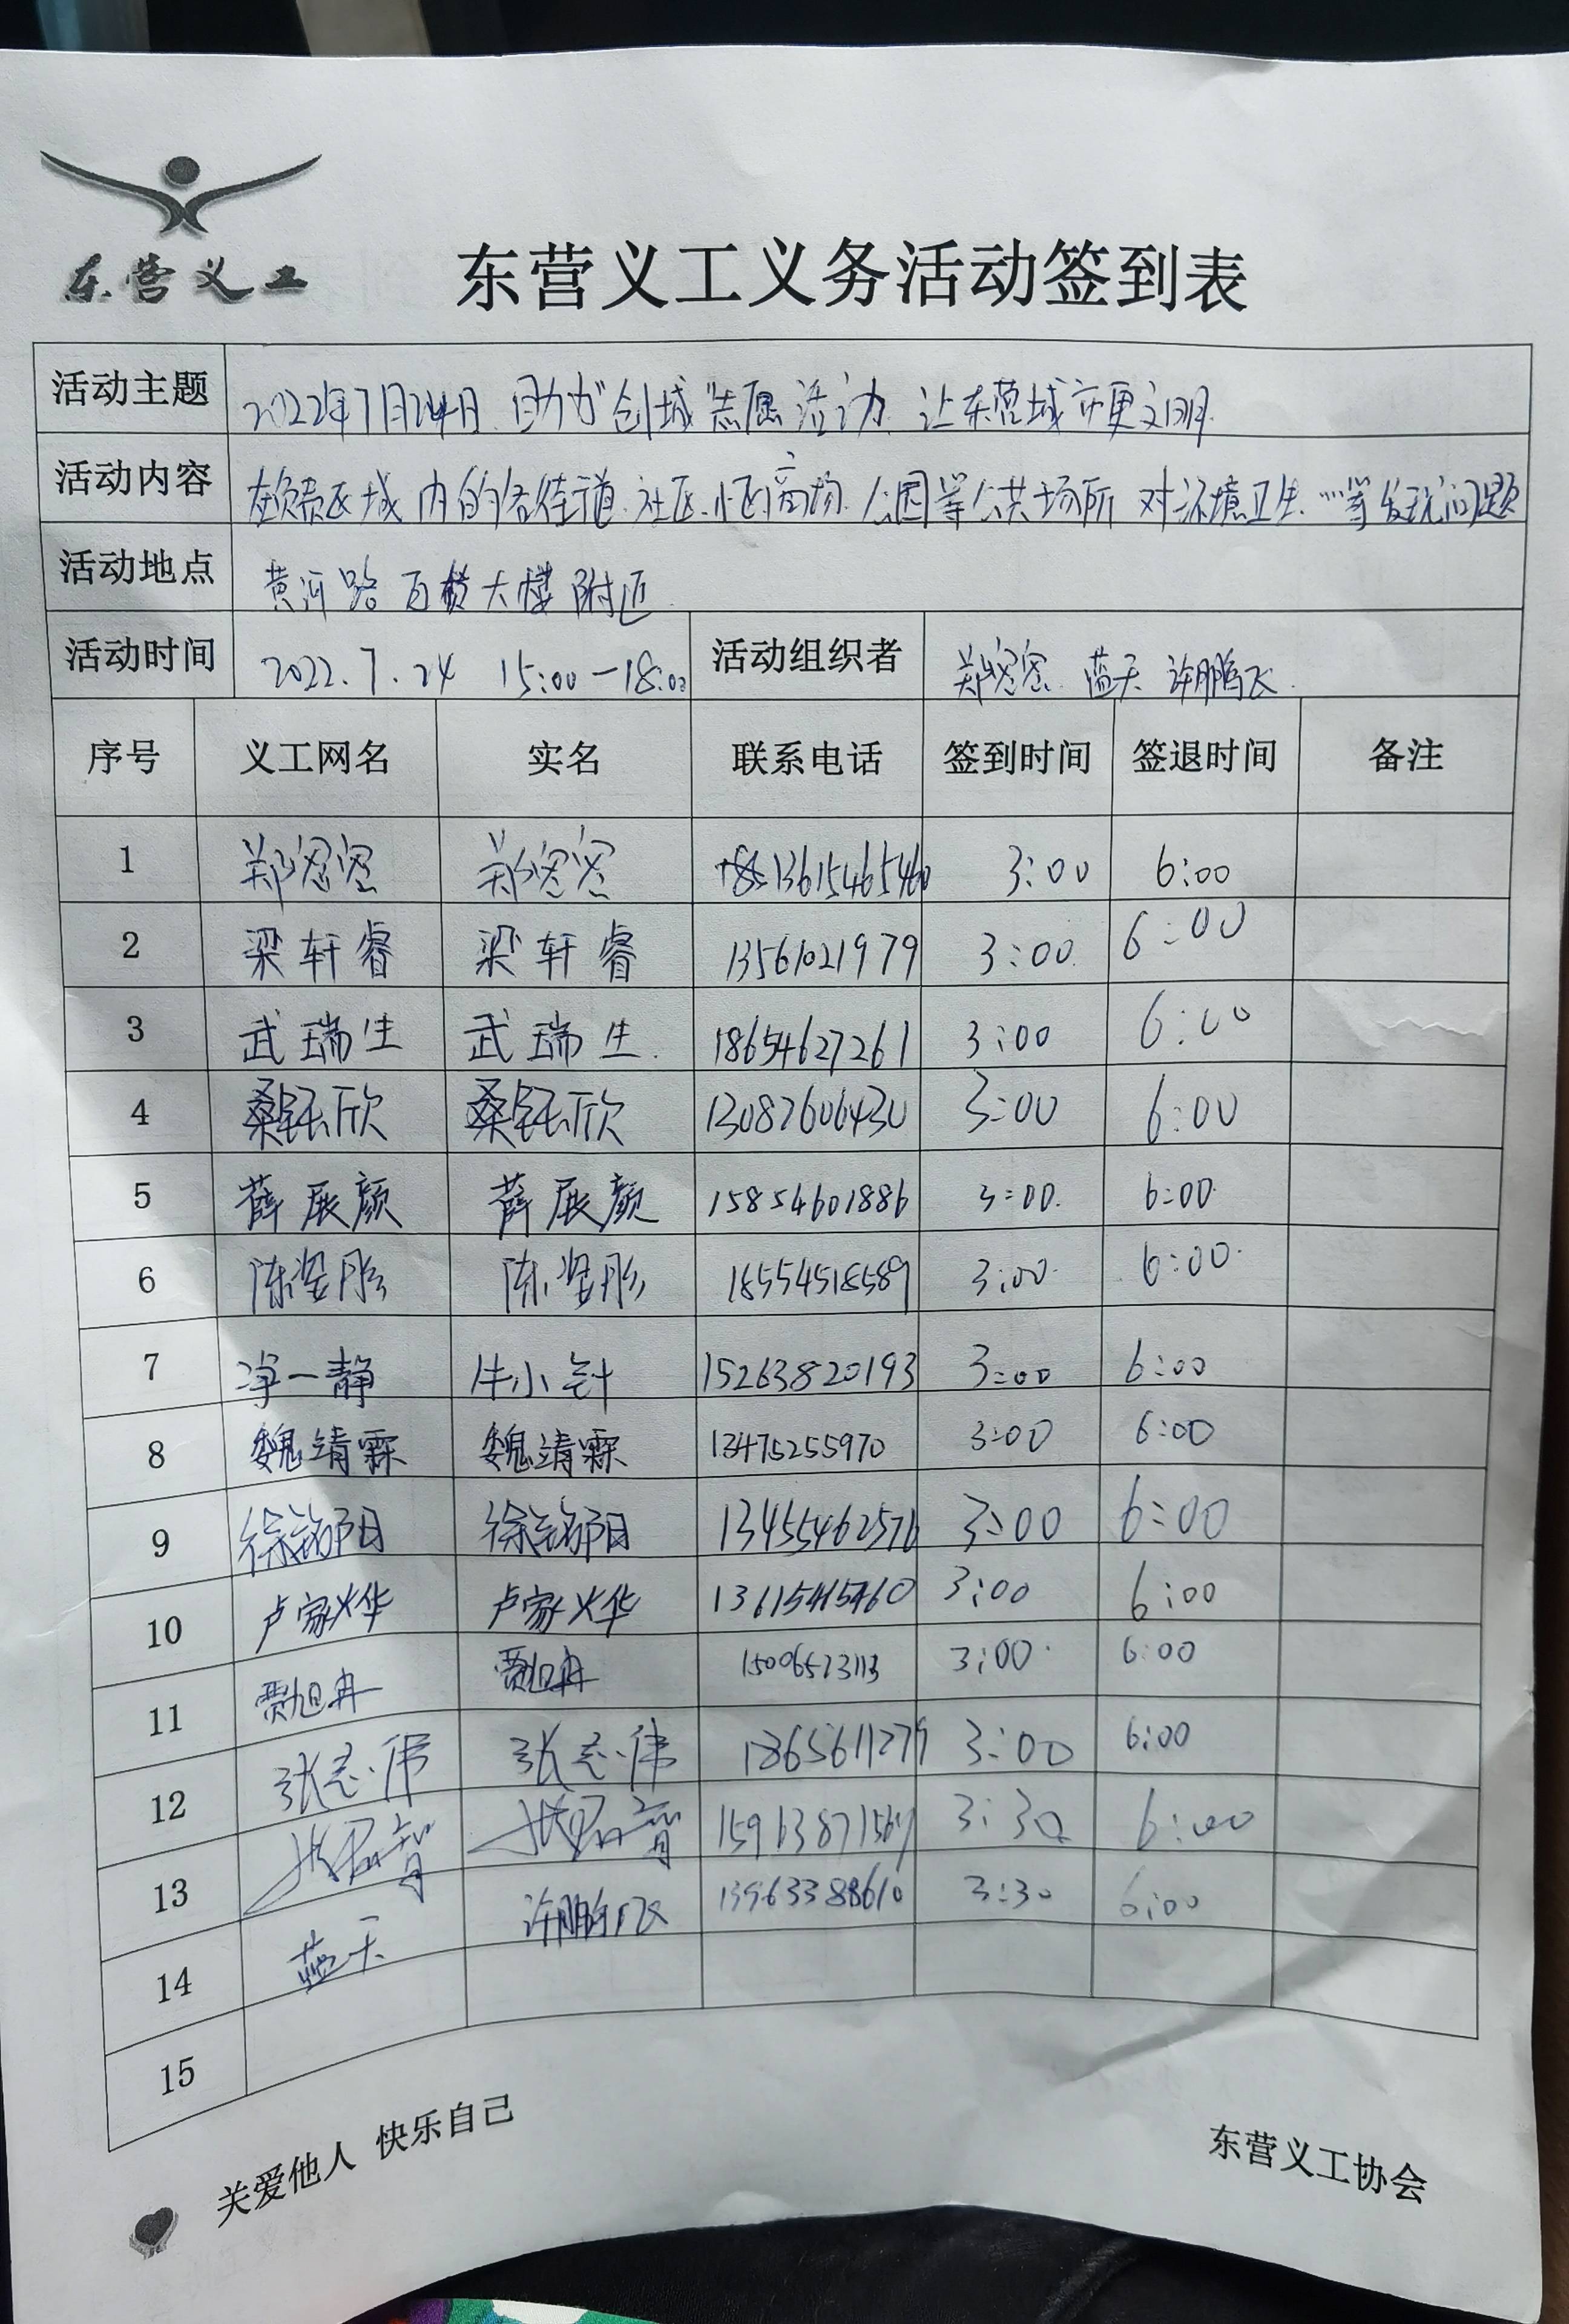 东营义工
东营义工义务活动签到表
活动主题 2022年7月24日 助力"创城"志愿活动 让东营城市更文明.
活动内容 在负责区域内的各街道.社区.小区.商场.公园等公共场所 对环境卫生……等发现问题
活动地点 黄河路 百货大楼附近
活动时间 2022.7.24 15:00—18:00 活动组织者 郑密密 蓝天 许鹏飞.
序号 义工网名 实名 联系电话 签到时间 签退时间 备注
1 郑密密 郑密密 13615465460 3:00 6:00
2 梁轩睿 梁轩睿 13561021979 3:00 6:00
3 武瑞生 武瑞生 18654627261 3:00 6:00
4 桑钰欣 桑钰欣 13082606430 3:00 6:00
5 薛展颜 薛展颜 15854601886 3:00 6:00
6 陈 陈 18554518589 3:00 6:00
7 净一静 牛小针 15263820193 3:00 6:00
8 魏靖霖 魏靖霖 13475255970 3:00 6:00
9 徐铭阳 徐铭阳 13455462576 3:00 6:00
10 卢家烨 卢家烨 13615465460 3:00 6:00
11 贾旭冉 贾旭冉 15006523113 3:00 6:00
12 张志伟 张志伟 1865611279 3:00 6:00
13 3:30 6:00
14 蓝天 许鹏飞 13963388610 3:30 6:00
15
关爱他人 快乐自己
东营义工协会